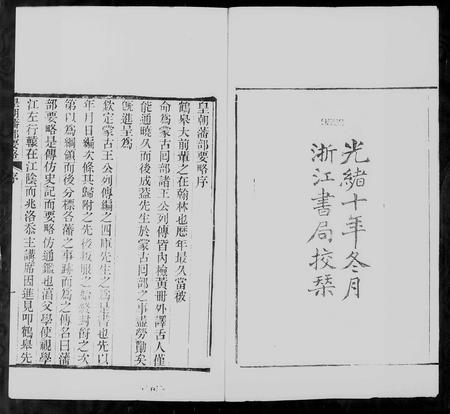 光緒十年冬月
浙江書局校栞
皇朝藩部要略序
鶴皋大前輩之在翰林也歷年最久當被
命爲蒙古回部諸王公列傳皆內檢黃冊外譯舌人僅
能通曉久而後成蓋先生於蒙古回部之事盡勞勩矣
旣進呈爲
欽定蒙古王公列傳編之四庫先生之爲是書也先以
年月日編次條其歸附之先後叛服之始終封爵之次
第以爲綱領而後分標各藩之事跡而爲之傳名曰藩
部要略是傳仿史記而要略仿通鑑也淯父學使視學
江左行轅在江陰而兆洛忝主講席因進見叩鶴皋先
皇朝藩部要略 序 一